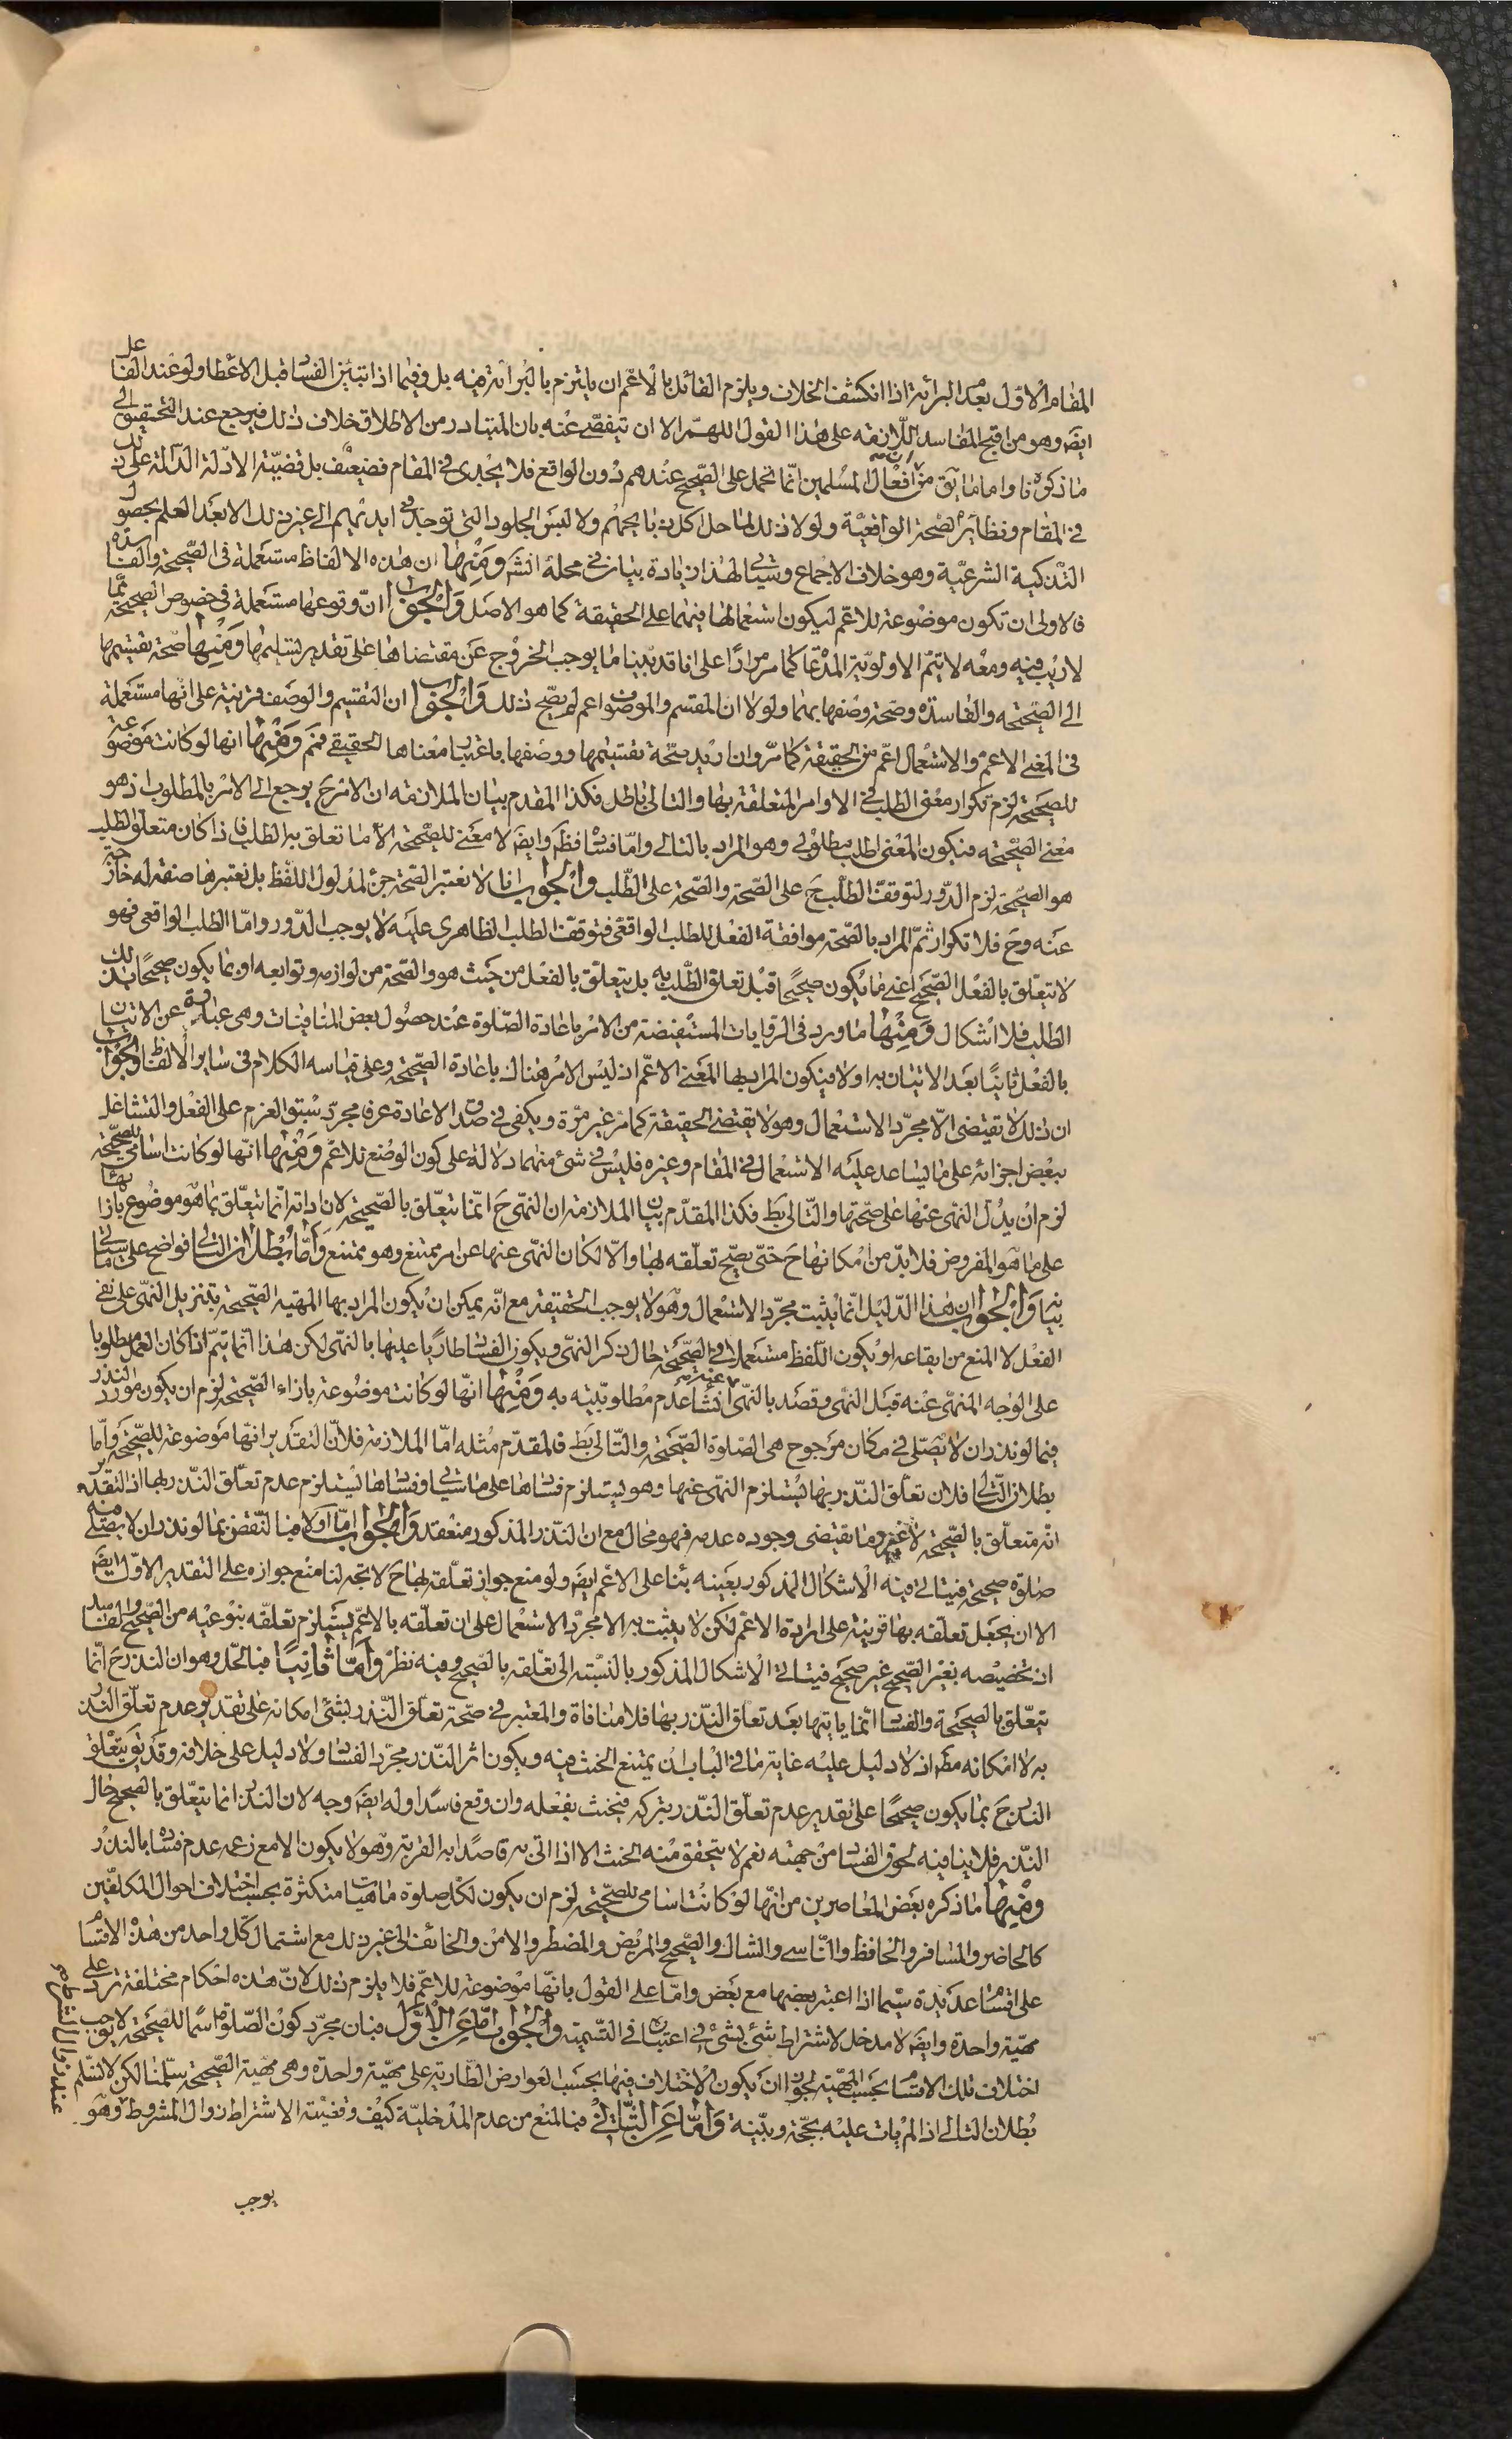 المقام الاول بعدم البرائة اذا انكشف الخلاف ويلزم القائل بالاعم ان يلتزم بالبرائة منه بل وفيما اذا تبين الفساد قبل الاعطاء ولو عند الفاعل
ايضَ وهو من اقبح المفاسد اللازمة على هذا القول اللهم الا ان يتفصى عنه بان المتبادر من الاطلاق خلاف ذلك فيرجع عند التحقيق الى
ما ذكرنا واما ما يق من ان افعال المسلمين انما تحمل على الصحيح عندهم دون الواقع فلا يجدى في المقام فضعيف بل قضية الادلة الدالة على ذلك
في المقام ونظايره الصحة الواقعية ولولا ذلك لما حل اكل ذبايحهم ولا لبس الجلود التى توجد في ايديهم الى غير ذلك الا بعد العلم بحصول
التذكية الشرعية وهو خلاف الاجماع وسيأتى لهذا زيادة بيان في محله انشَ ومنها ان هذه الالفاظ مستعملة في الصحيحة والفاسدة
فالاولى ان تكون موضوعة للاعم ليكون استعمالها فيهما على الحقيقة كما هو الاصل والجواب ان وقوعها مستعملة في خصوص الصحيحة مما
لا ريب فيه ومعه لا يتم الاولوية المدعاة كما مر مرارا على انا قد بينا ما يوجب الخروج عن مقتضاها على تقدير تسليمها ومنها صحة تقسيمها
الى الصحيحه والفاسدة وصحة وصفها بهما ولولا ان المقسم والموصوف اعم لم يصح ذلك والجواب ان التقسيم والوصف قرينة على انها مستعملة
في المعنى الاعم والاستعمال اعم من الحقيقة كما مر وان اريد صحة تقسيمها ووصفها باعتبار معناها الحقيقي فمم ومنها انها لو كانت موضوعة
للصحيحة لزم تكرار معنى الطلب في الاوامر المتعلقة بها والتالى باطل فكذا المقدم بيان الملازمة ان الامر حَ يرجع الى الامر بالمطلوب اذ هو
معنى الصحيحه فيكون المعنى اطلب مطلوبي وهو المراد بالتالى واما فساده فظَ وايضَ لا معنى للصحيحة الا ما تعلق به الطلب فاذا كان متعلق الطلب
هو الصحيحة لزم الدور لتوقف الطلب حَ على الصحة والصحة على الطلب والجواب انا لا نعتبر الصحة جزء لمدلول اللفظ بل نعتبرها صفة له خارجة
عنه وحَ فلا تكرار ثم المراد بالصحة موافقة الفعل للطلب الواقعى فتوقف الطلب الظاهرى عليه لا يوجب الدور واما الطلب الواقعى فهو
لا يتعلق بالفعل الصحيح اعنى ما يكون صحيحا قبل تعلق الطلب به بل يتعلق بالفعل من حيث هو والصحة من لوازمه وتوابعه او بما يكون صحيحا بذلك
الطلب فلا اشكال ومنها ما ورد في الروايات المستفيضة من الامر باعادة الصلوة عند حصول بعض المنافيات وهى عبارة عن الاتيان
بالفعل ثانيا بعد الاتيان به اولا فيكون المراد بها المعنى الاعم اذ ليس الامر هناك باعادة الصحيحة وعلى قياسه الكلام في ساير الالفاظ والجواب
ان ذلك لا يقتضى الا مجرد الاستعمال وهو لا يقتضى الحقيقة كما مر غير مرة ويكفى في صدق الاعادة عرفا مجرد سبق العزم على الفعل والتشاغل
ببعض اجزائه على ما يساعد عليه الاستعمال في المقام وغيره فليس في شئ منهما دلالة على كون الوضع للاعم ومنها انها لو كانت اسامى للصحيحة
لزم ان يدل النهى عنها على صحتها والتالى بَط فكذا المقدم بيان الملازمة ان النهى حَ انما يتعلق بالصحيحة لان اداته انما تتعلق بما هو موضوع بازائها
على ما هو المفروض فلا بد من امكانها حَ حتى يصح تعلقه بها والا لكان النهى عنها عن امر ممتنع وهو ممتنع واما بطلان التالى فواضح على ما سيأتى
بيانه والجواب ان هذا الدليل انما يثبت مجرد الاستعمال وهو لا يوجب الحقيقة مع انه يمكن ان يكون المراد بها المهية الصحيحة بتنزيل النهى على نفى
الفعل لا المنع من ايقاعه او يكون اللفظ مستعملا في الصحيحة حال ذكر النهى ويكون الفساد طاريا عليها بالنهى لكن هذا انما يتم اذا كان العمل مطلوبا
على الوجه المنهى عنه قبل النهى وقصد بالنهى عنه انشاء عدم مطلوبيته به ومنها انها لو كانت موضوعة بازاء الصحيحة لزم ان يكون مورد النذر
فيما لو نذر ان لا يصلى في مكان مرجوح هى الصلوة الصحيحة والتالى بَط فالمقدم مثله اما الملازمة فلان التقدير انها موضوعة للصحيحة واما
بطلان التالى فلان تعلق النذر بها يستلزم النهى عنها وهو يستلزم فسادها على ما سيأتى وفسادها يستلزم عدم تعلق النذر بها اذ التقدير
انه متعلق بالصحيحة لا غير وما يقتضى وجوده عدمه فهو محال مع ان النذر المذكور منعقد والجواب اما اولا فبالنقض بما لو نذر ان لا يصلى فيه
صلوة صحيحة فيتأتى فيه الاشكال المذكور بعينه بناء على الاعم ايضَ ولو منع جواز تعلقه بها حَ لاتجه لنا منع جوازه على التقدير الاول ايضَ
الا ان يجعل تعلقه بها قرينة على ارادة الاعم لكن لا يثبت به الا مجرد الاستعمال على ان تعلقه بالاعم يستلزم تعلقه بنوعيه من الصحيح والفاسد
اذ تخصيصه بغير الصحيح غير صحيح فيتأتى الاشكال المذكور بالنسبة الى تعلقه بالصحيح وفيه نظر واما ثانيا فبالحل وهو ان النذر حَ انما
يتعلق بالصحيحة والفساد انما ياتيها بعد تعلق النذر بها فلا منافاة والمعتبر في صحة تعلق النذر بشئ امكانه على تقدير عدم تعلق النذر
به لا امكانه مطَ اذ لا دليل عليه غاية ما في الباب ان يمتنع الحنث فيه ويكون اثر النذر مجرد الفساد ولا دليل على خلافه وقد يق يتعلق
النذر حَ بما يكون صحيحا على تقدير عدم تعلق النذر بتركه فيحنث بفعله وان وقع فاسدا وله ايضَ وجه لان النذر انما يتعلق بالصحيح حال
النذر فلا ينافيه لحوق الفساد من جهته نعم لا يتحقق منه الحنث الا اذا اتى به قاصدا به القربة وهو لا يكون الا مع زعمه عدم فساده بالنذر
ومنها ما ذكره بعض المعاصرين من انها لو كانت اسامى للصحيحة لزم ان يكون لكل صلوة ماهيات متكثرة بحسب اختلاف احوال المكلفين
كالحاضر والمسافر والحافظ والناسى والشاك والصحيح والمريض والمضطر والامن والخائف الى غير ذلك مع اشتمال كل واحد من هذه الاقسام
على اقسام عديدة سيما اذا اعتبر بعضها مع بعض واما على القول بانها موضوعة للاعم فلا يلزم ذلك لان هذه احكام مختلفة ترد على
مهية واحدة وايضَ لا مدخل لاشتراط شئ بشئ في اعتباره في التسمية والجواب اما عن الاول فبان مجرد كون الصلوة اسما للصحيحة لا يوجب
اختلاف تلك الاقسام بحسب المهية لجواز ان يكون الاختلاف فيها بحسب العوارض الطارية على مهية واحدة وهى مهية الصحيحة سلمنا لكن لا نسلم
بطلان التالى اذ لم يات عليه بحجة وبينة واما عن الثانى فبالمنع من عدم المدخلية كيف وقضية الاشتراط زوال المشروط وهو
عند زوال الشرط
يوجب